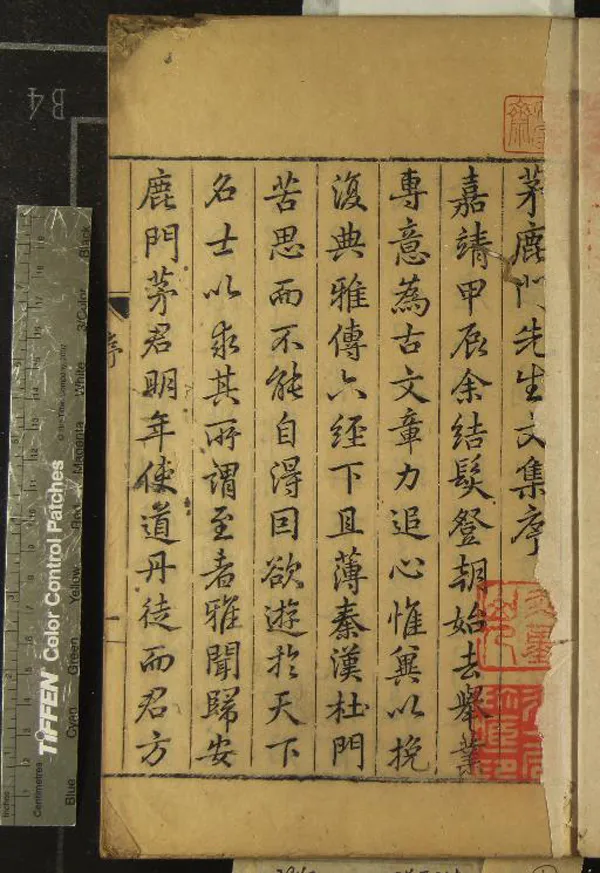 茅鹿門先生文集序
嘉靖甲辰余結髮登朝始去舉業
專意為古文章力追心惟冀以挽
復典雅傳六經下且薄秦漢杜門
苦思而不能自得因欲遊於天下
名士以求其所謂至者雅聞歸安
鹿門茅君明年使道丹徒而君方
序
一
B4
TIFFEN Color Control Patches
Inches
Centimetres
Blue
Cyan
Green
Yellow
Red
Magenta
White
3/Color
Black